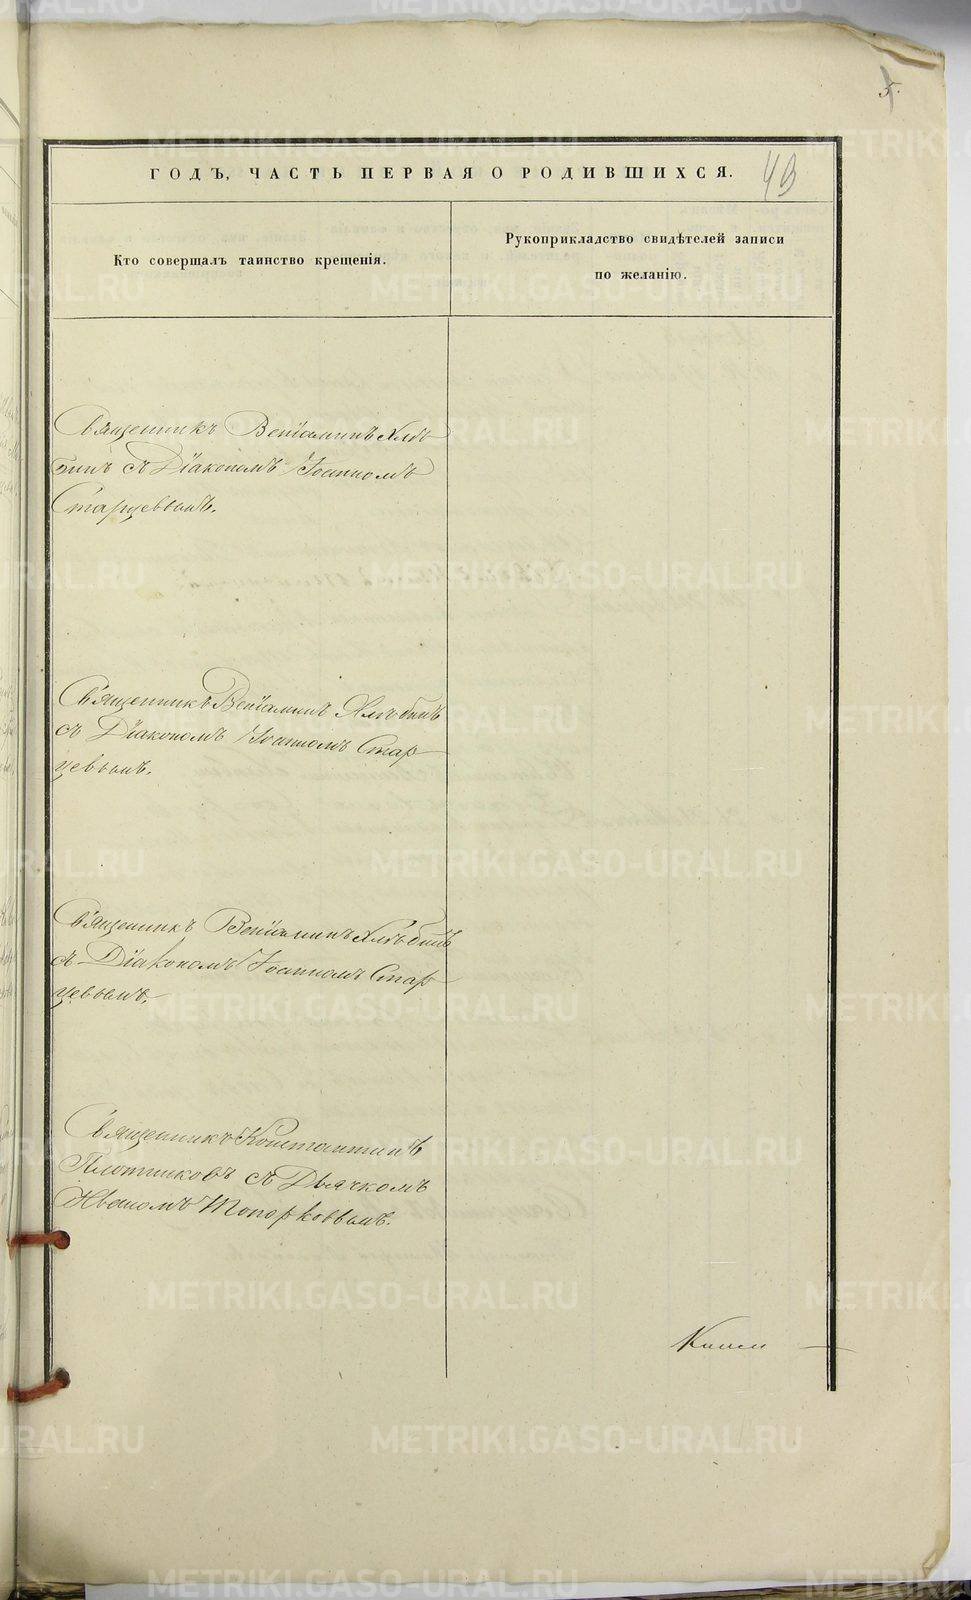 5.
49
ГОДЪ, ЧАСТЬ ПЕРВАЯ О РОДИВШИХСЯ.
Кто совершалъ таинство крещенія.
Рукоприкладство свидѣтелей записи
по желанію.
Священникъ Веніаминъ Хлѣ
бинъ съ Діакономъ Іоанномъ
Старцевымъ.
Священникъ Веніаминъ Хлѣбинъ
съ Діакономъ Іоанномъ Стар
цевымъ.
Священникъ Веніаминъ Хлѣбинъ
съ Діакономъ Іоанномъ Стар
цевымъ.
Священникъ Константинъ
Плотниковъ съ Дьячкомъ
Иваномъ Топорковымъ.
METRIKI.GASO-URAL.RU